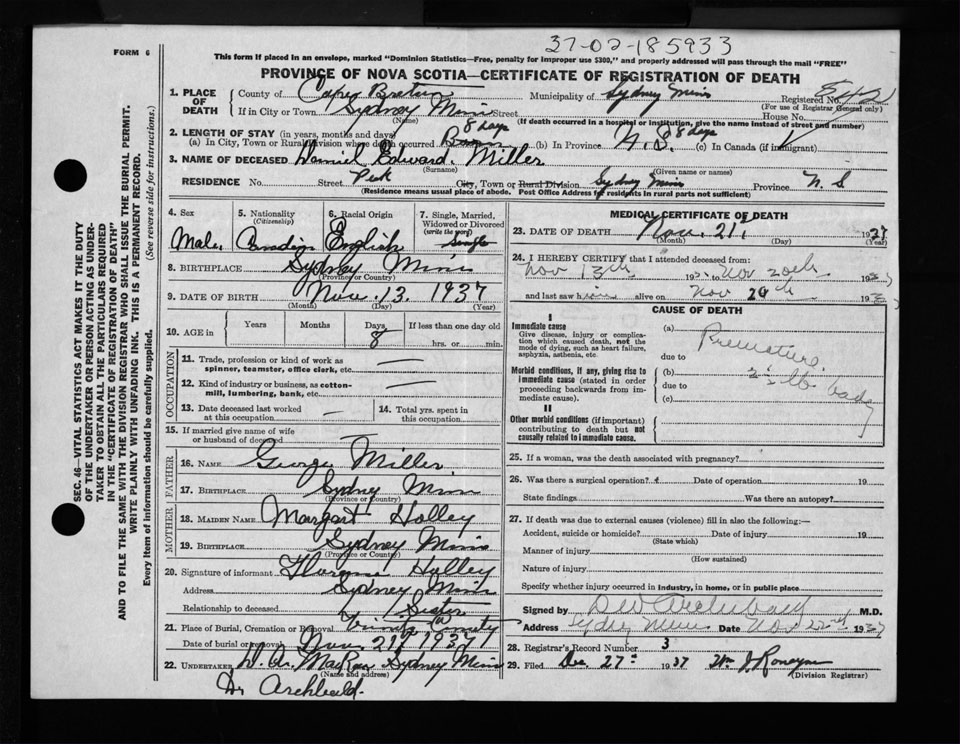 37-02-185933
FORM 6
This form if placed in an envelope, marked "Dominion Statistics—Free, penalty for improper use $300," and properly addressed will pass through the mail "FREE"
PROVINCE OF NOVA SCOTIA—CERTIFICATE OF REGISTRATION OF DEATH
1. PLACE OF DEATH County of Cape Breton Municipality of Sydney Mines Registered No.
(For use of Registrar General only)
If in City or Town Sydney Mines Street House No.
(Name) (If death occurred in a hospital or institution, give the name instead of street and number)
2. LENGTH OF STAY (in years, months and days)
(a) In City, Town or Rural Division where death occurred 8 days (b) In Province N.S. 8 days (c) In Canada (if immigrant)
3. NAME OF DECEASED Daniel Edward. Miller
(Surname) (Given name or names)
RESIDENCE No. Street City, Town or Rural Division Sydney Mines Province N. S
(Residence means usual place of abode. Post Office Address for residents in rural parts not sufficient)
4. Sex Male
5. Nationality (Citizenship) Canadian
6. Racial Origin English
7. Single, Married, Widowed or Divorced (write the word) Single
8. BIRTHPLACE Sydney Mines
(Province or Country)
9. DATE OF BIRTH Nov. 13. 1937
(Month) (Day) (Year)
10. AGE in Years Months Days 8 If less than one day old hrs. or min.
OCCUPATION
11. Trade, profession or kind of work as spinner, teamster, office clerk, etc. —
12. Kind of industry or business, as cotton-mill, lumbering, bank, etc. —
13. Date deceased last worked at this occupation —
14. Total yrs. spent in this occupation
15. If married give name of wife or husband of deceased
FATHER
16. NAME George Miller.
17. BIRTHPLACE Sydney Mines
(Province or Country)
MOTHER
18. MAIDEN NAME Margart Holley
19. BIRTHPLACE Sydney Mines
(Province or Country)
20. Signature of informant Florence Holley
Address Sydney Mines
Relationship to deceased Sister
21. Place of Burial, Cremation or Removal Trinity
Date of burial or removal Nov. 21st 1937
22. UNDERTAKER Sydney Mines
(Name and address)
Dr Archibald.
MEDICAL CERTIFICATE OF DEATH
23. DATE OF DEATH Nov. 21st 1937
(Month) (Day) (Year)
24. I HEREBY CERTIFY that I attended deceased from:
Nov 13th 193 to Nov 20th 193
and last saw him alive on Nov 20th 193
CAUSE OF DEATH
I
Immediate cause
Give disease, injury or complication which caused death, not the mode of dying, such as heart failure, asphyxia, asthenia, etc.
(a) Premature
due to
Morbid conditions, if any, giving rise to immediate cause (stated in order proceeding backwards from immediate cause)
(b) 2½ lb baby
due to
(c)
II
Other morbid conditions (if important) contributing to death but not causally related to immediate cause.
25. If a woman, was the death associated with pregnancy?
26. Was there a surgical operation? Date of operation 19
State findings Was there an autopsy?
27. If death was due to external causes (violence) fill in also the following:—
Accident, suicide or homicide? Date of injury 19
(State which)
Manner of injury
(How sustained)
Nature of injury
Specify whether injury occurred in industry, in home, or in public place
Signed by D W Archibald M.D.
Address Sydney Mines Date Nov 22nd 1937
28. Registrar's Record Number 3
29. Filed Dec 27th 1937
(Division Registrar)
SEC. 46—VITAL STATISTICS ACT MAKES IT THE DUTY
OF THE UNDERTAKER OR PERSON ACTING AS UNDER-
TAKER TO OBTAIN ALL THE PARTICULARS REQUIRED
IN THE "CERTIFICATE OF REGISTRATION OF DEATH"
AND TO FILE THE SAME WITH THE DIVISION REGISTRAR WHO SHALL ISSUE THE BURIAL PERMIT.
WRITE PLAINLY WITH UNFADING INK. THIS IS A PERMANENT RECORD.
Every item of information should be carefully supplied. (See reverse side for instructions.)